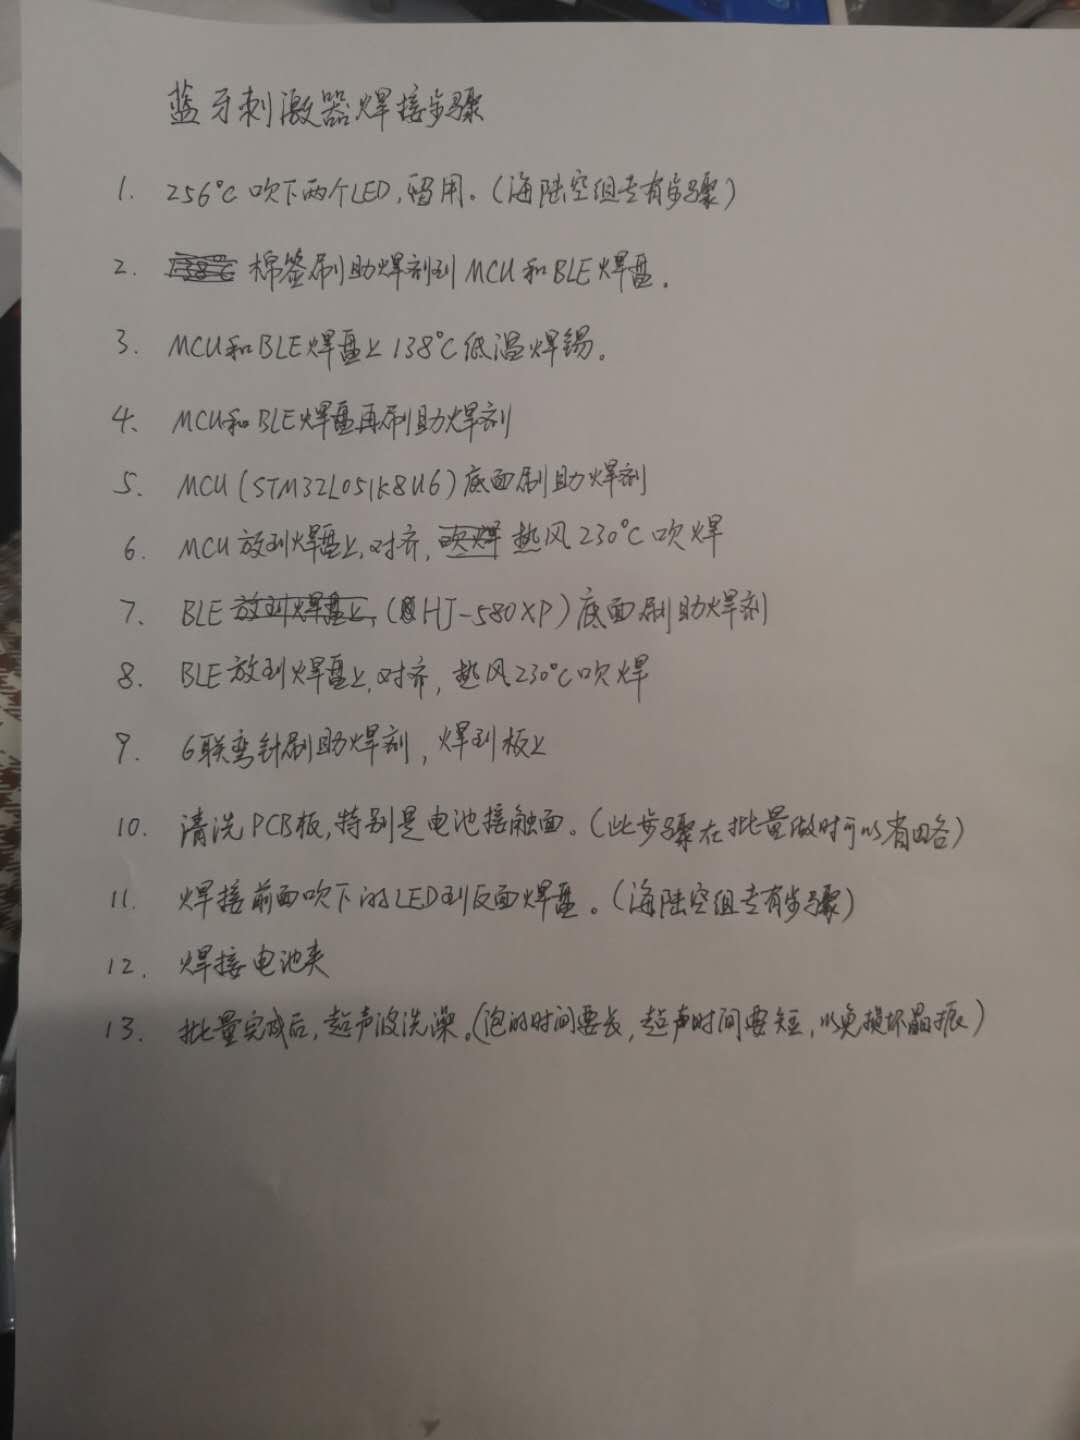 蓝牙刺激器焊接步骤
1. 256°C 吹下两个LED,留用。(海陆空组专有步骤)
2. 棉签刷助焊剂到 MCU 和 BLE 焊盘.
3. MCU和BLE焊盘上 138°C 低温焊锡。
4. MCU和BLE焊盘再刷助焊剂
5. MCU (STM32L051K8U6) 底面刷助焊剂
6. MCU 放到焊盘上,对齐, 热风 230°C 吹焊
7. BLE (HJ-580XP) 底面刷助焊剂
8. BLE 放到焊盘上,对齐, 热风230°C吹焊
9. 6联弯针刷助焊剂, 焊到板上
10. 清洗 PCB板, 特别是电池接触面。(此步骤在批量做时可以省略)
11. 焊接前面吹下的LED到反面焊盘。(海陆空组专有步骤)
12. 焊接电池夹
13. 批量完成后, 超声波洗澡。(泡的时间要长, 超声时间要短, 以免损坏晶振)